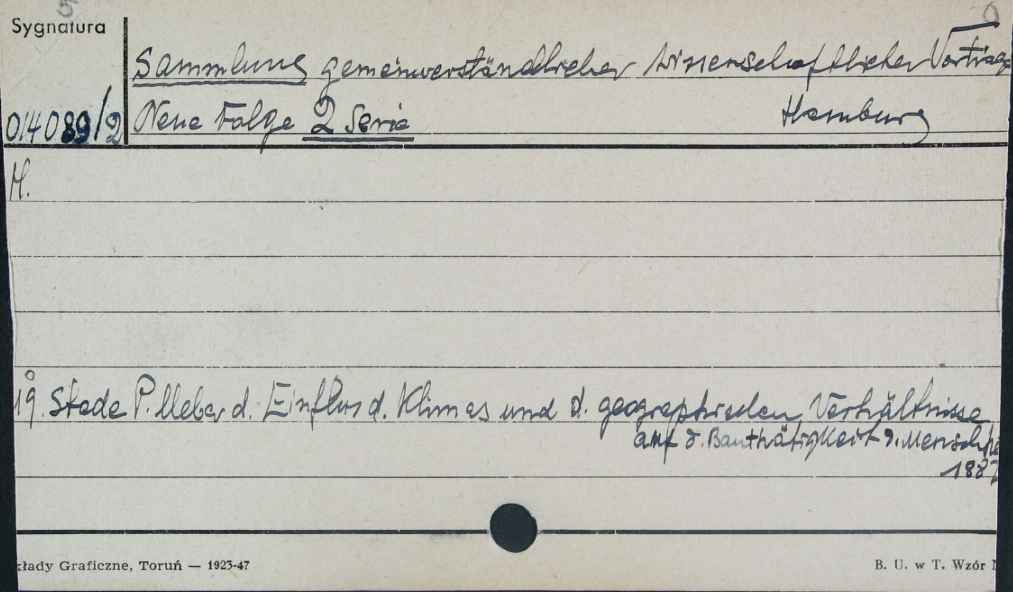 5
Sygnatura
Sammlung gemeinverständlicher wissenschaftlicher Vorträge
014089/2 Neue Folge 2 Serie Hamburg
H.
19. Stade P. Ueber d. Einfluss d. Klimas und d. geographischen Verhältnisse
auf d. Bauthätigkeit d. Mensch
188
kłady Graficzne, Toruń — 1923-47
B. U. w T. Wzór